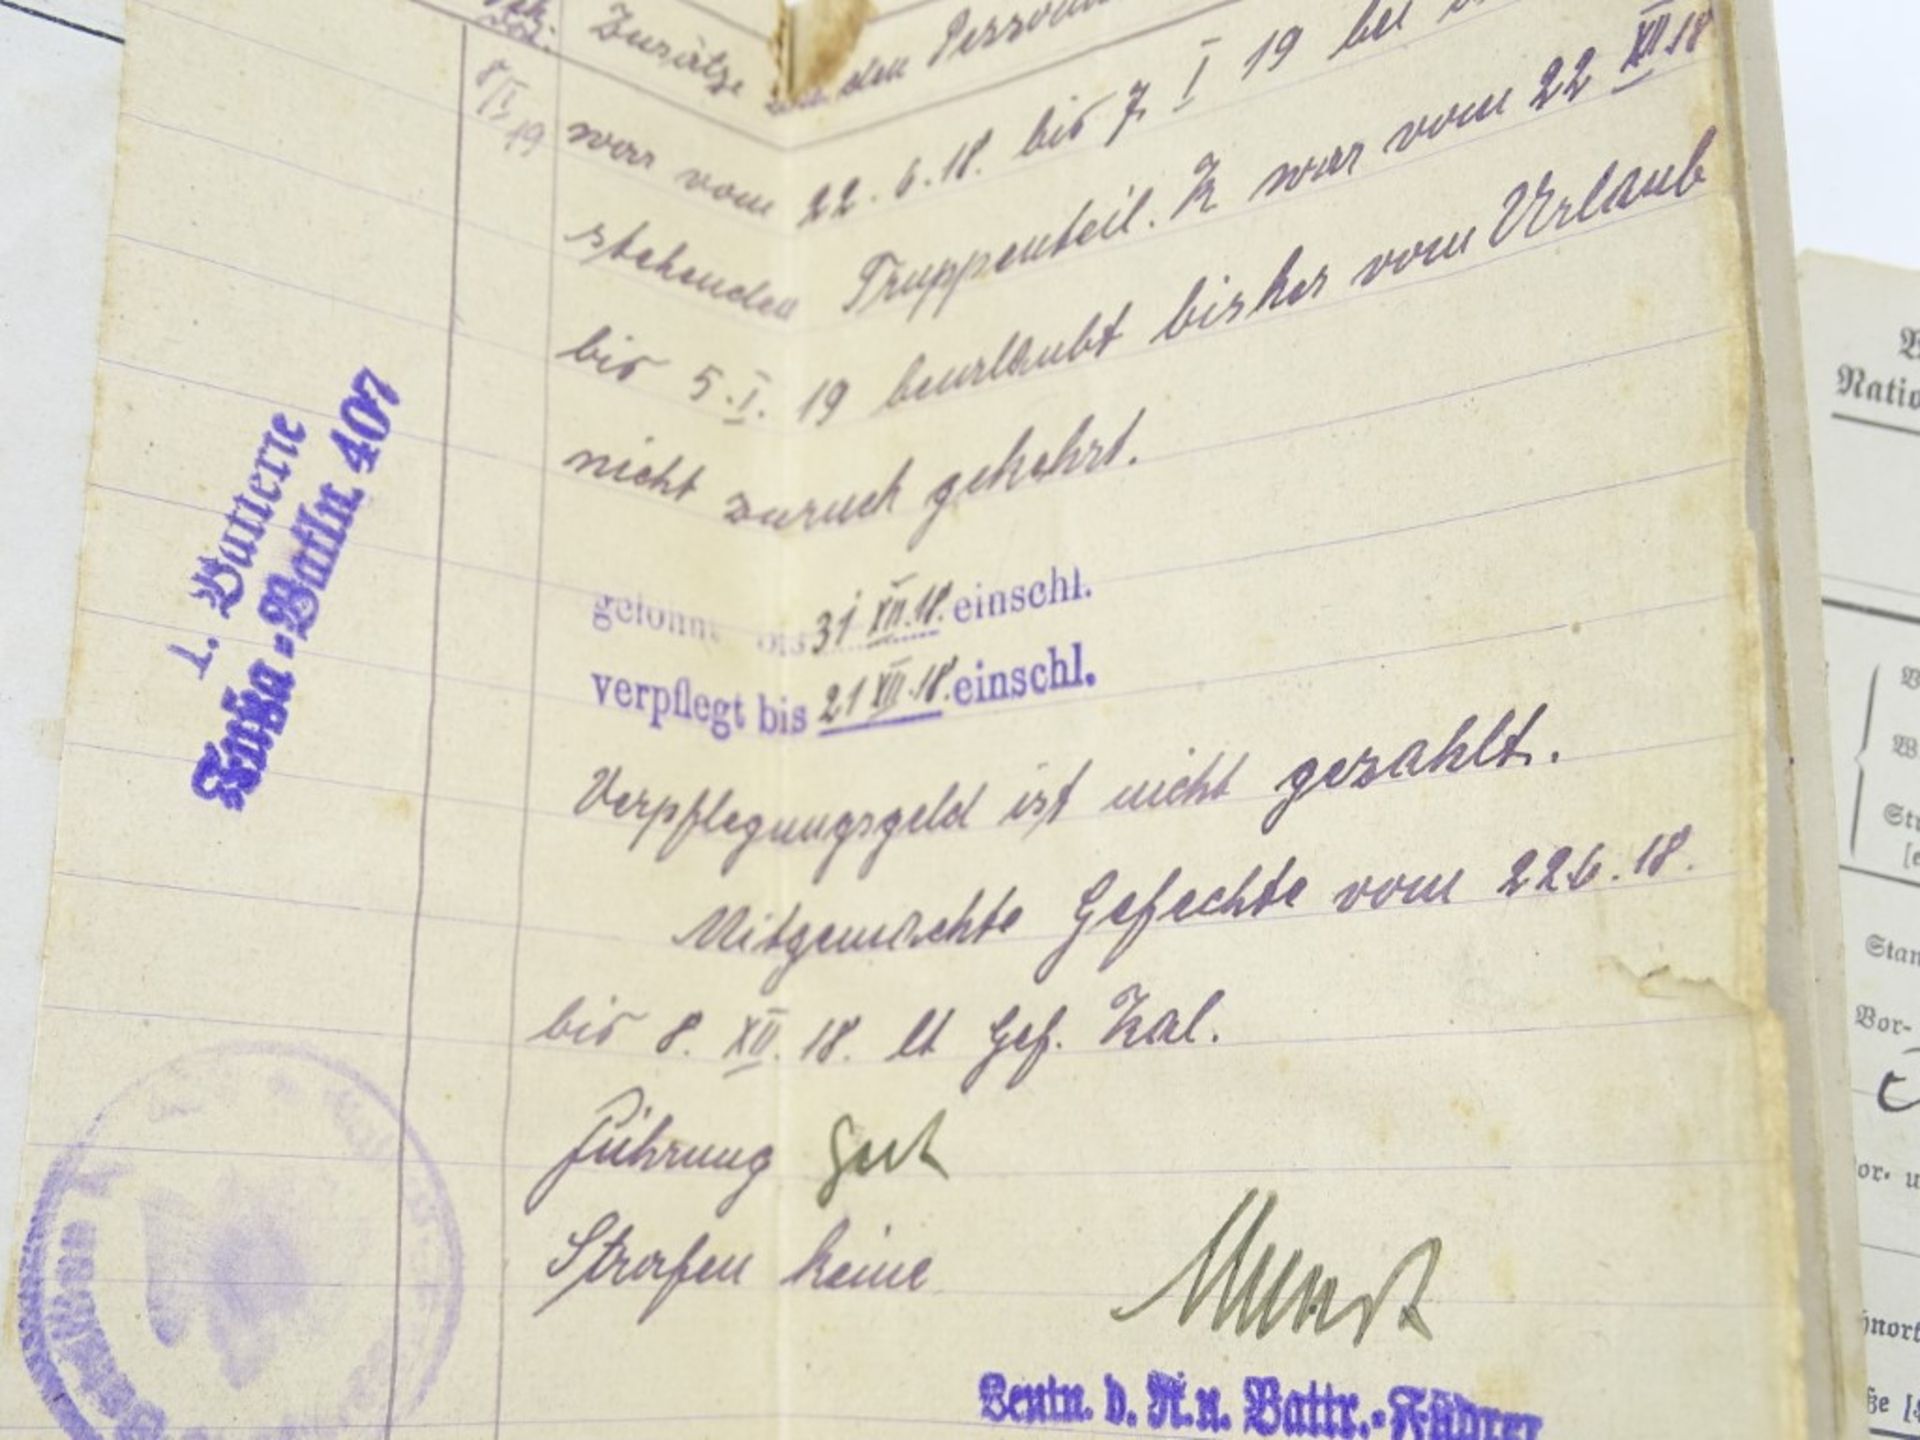 Zusätze zu den Personal
8/I 19
war vom 22.6.18. bis 7. I 19 bei
stehenden Truppenteil. K war vom 22 XII 18
bis 5.I. 19 beurlaubt bisher vom Urlaub
nicht zuruck gekehrt.
gelöhnt bis 31 XII.18. einschl.
verpflegt bis 21 XII.18. einschl.
Verpflegungsgeld ist nicht gezahlt.
Mitgemachte Gefechte vom 22.6.18.
bis 8. XII. 18. lt Gef. Kal.
Führung gut
Strafen keine
Leutn. d. R. u. Battr.-Führer
1. Batterie
Fußa.-Batln. 407
Natio
Stan
Vor-
or- u